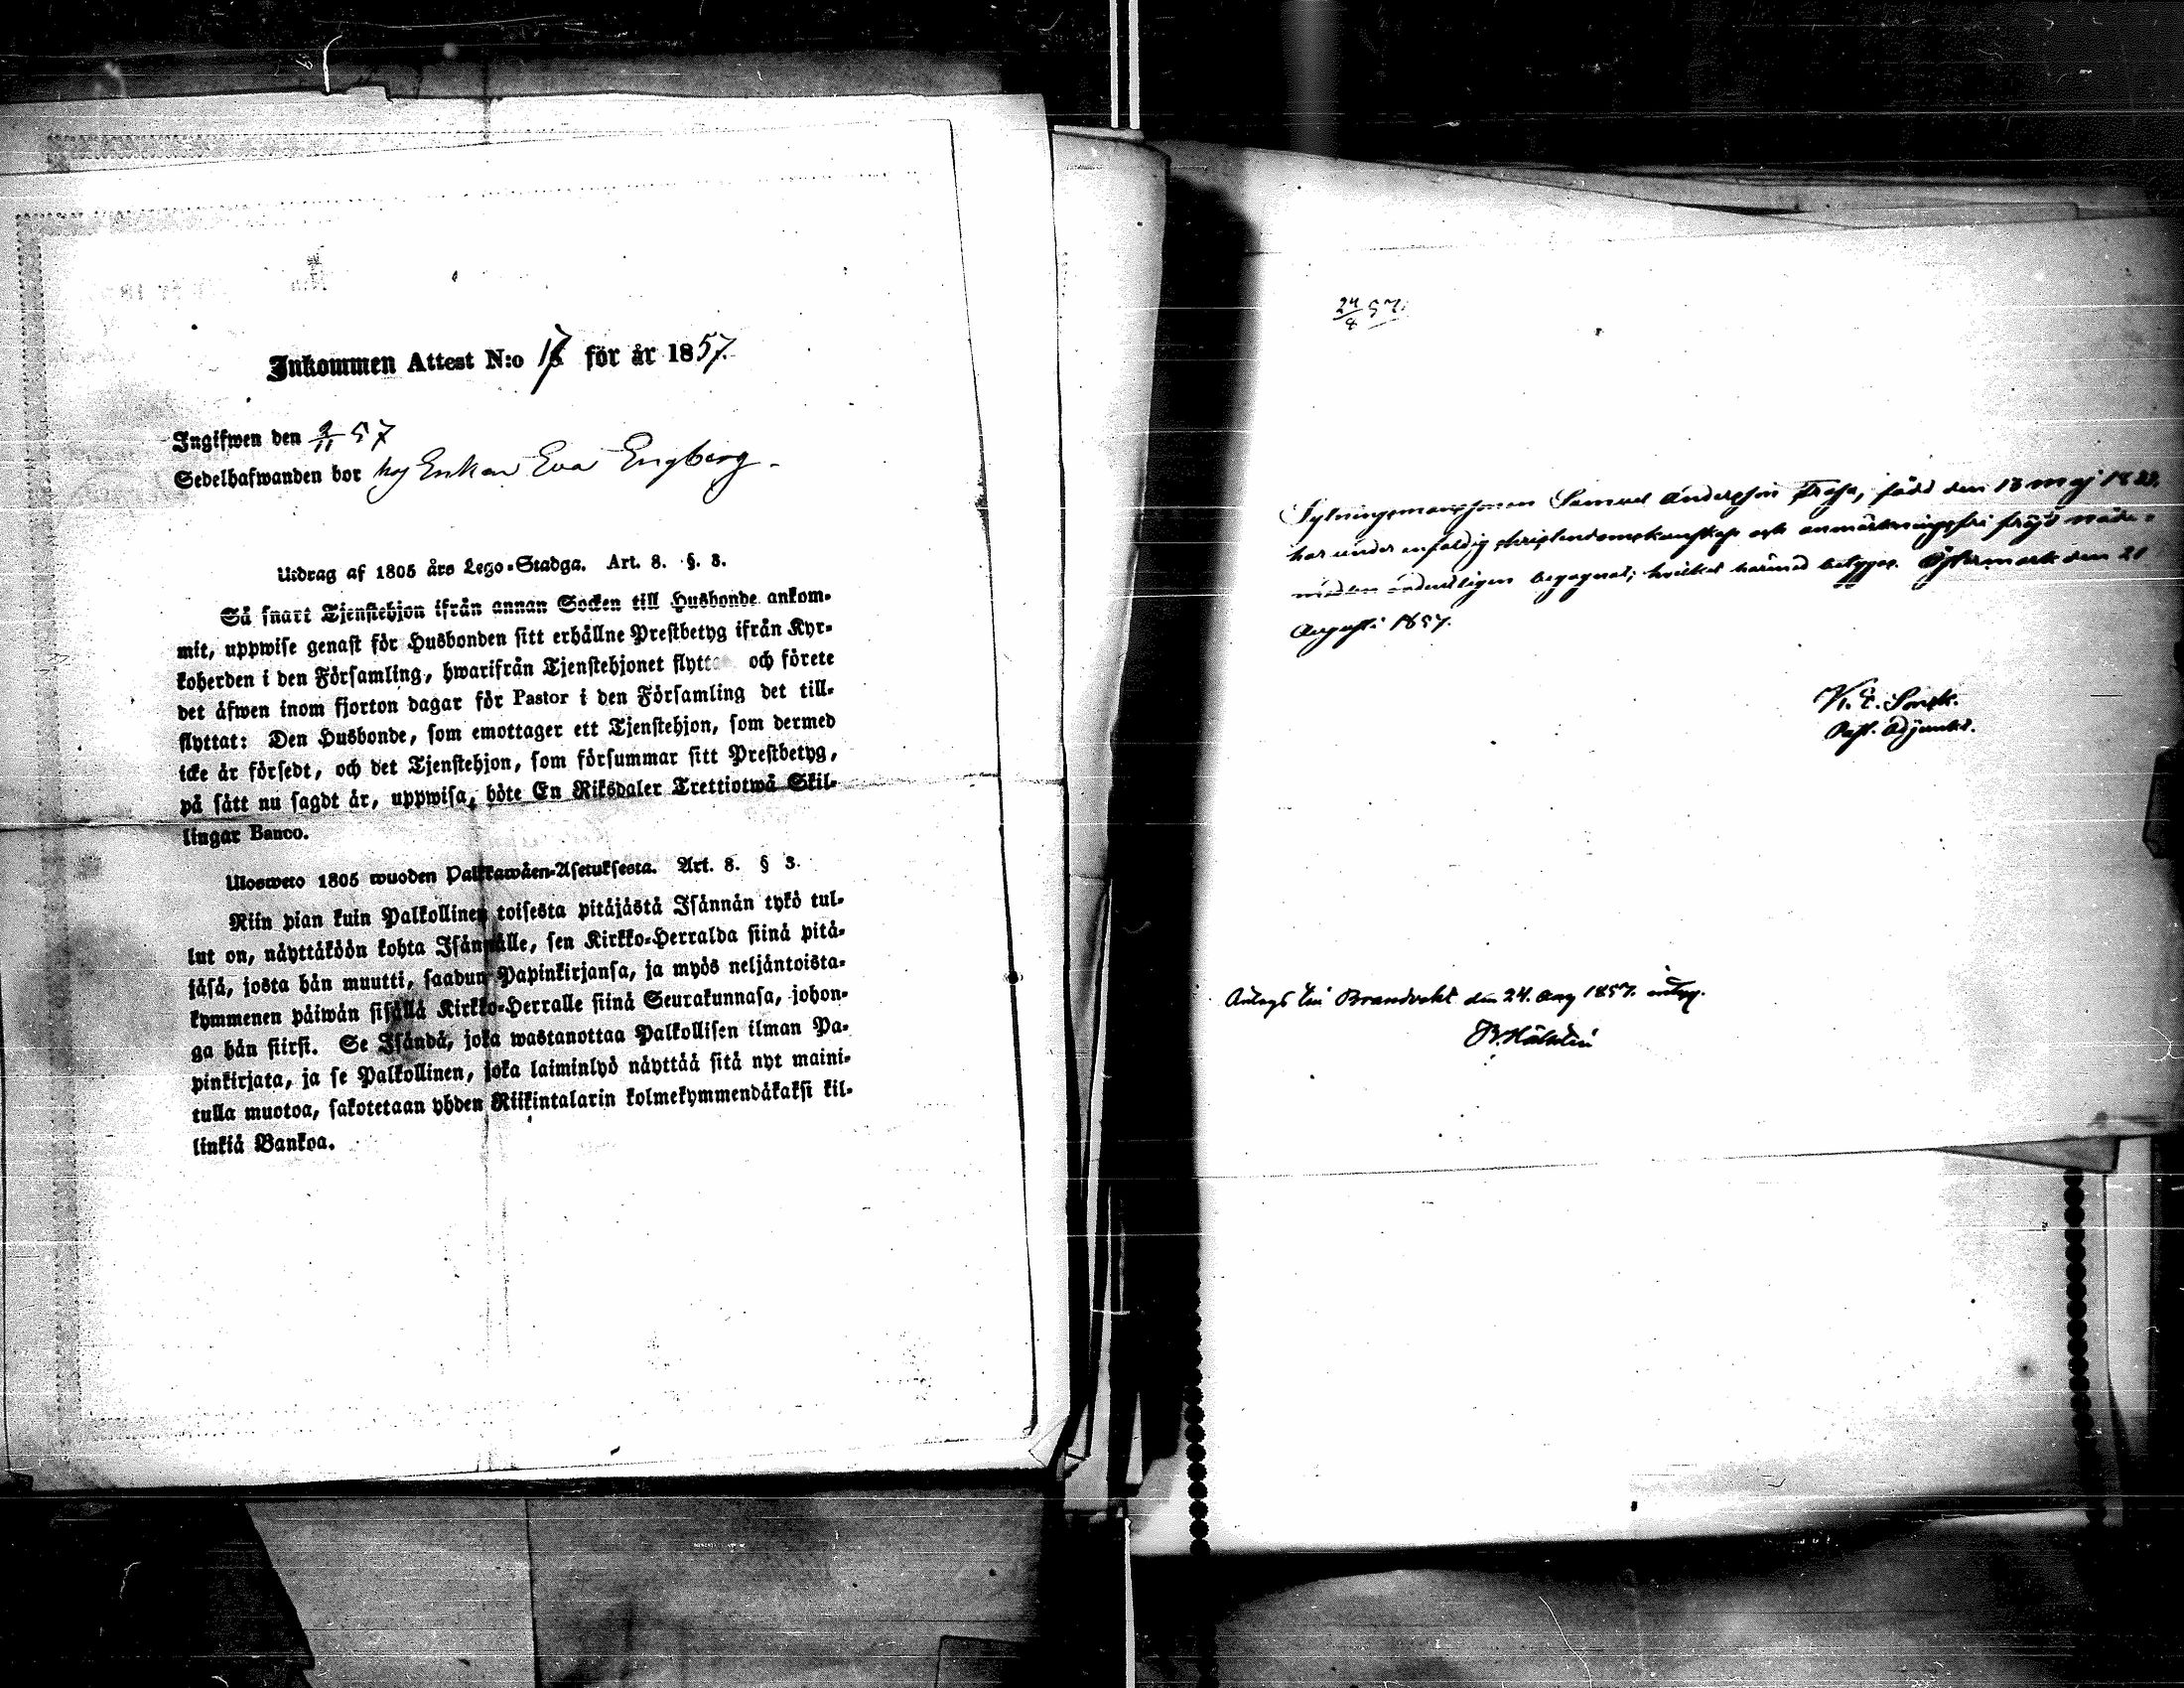 Inkommen Attest N:o 17 för år 1857.
Ingifwen den 2/11 57
Sedelhafwanden bor hos Enkan Eva Engberg.
Utdrag af 1805 års Lego-Stadga. Art. 8. §. 3.
Så snart Tjenstehjon ifrån annan Socken till Husbonde ankom-
mit, uppwise genast för Husbonden sitt erhållne Prestbetyg ifrån Kyr-
koherden i den Församling, hwarifrån Tjenstehjonet flytt och förete
det äfwen inom fjorton dagar för Pastor i den Församling det till-
flyttat: Den Husbonde, som emottager ett Tjenstehjon, som dermed
icke är försedt, och det Tjenstehjon, som försummar sitt Prestbetyg,
på sätt nu sagdt är, uppwisa, böte En Riksdaler Trettiotwå Skil-
lingar Banco.
Ulosweto 1805 wuoden Palkkawäen-Asetuksesta. Art. 8. § 3.
Niin pian kuin Palkollinen toisesta pitäjästä Isännän tykö tul-
lut on, näyttäköön kohta Isännälle, sen Kirkko-Herralda siinä pitä-
jäsä, josta hän muutti, saadun Papinkirjansa, ja myös neljäntoista-
kymmenen päiwän sisällä Kirkko-Herralle siinä Seurakunnasa, johon-
ga hän siirsi. Se Isändä, joka wastanottaa Palkollisen ilman Pa-
pinkirjata, ja se Palkollinen, joka laiminlyö näyttää sitä nyt maini-
tulla muotoa, sakotetaan yhden Riikintalarin kolmekymmendäkaksi kil-
linkiä Bankoa.
24/8 57.
Sytningsmanssonen Samuel Andersson Träsk, född den 13 maj 1829,
har under enfaldig christendomskunskap och anmärkningsfri fräjd nåde-
medlen ordentligen begagnat; hvilket härmed betygas. Östermark den 21
Augusti 1857.
K. E. Smek.
Past. Adjunkt.
Antags till Brandvakt den 24. Aug 1857. intyg.